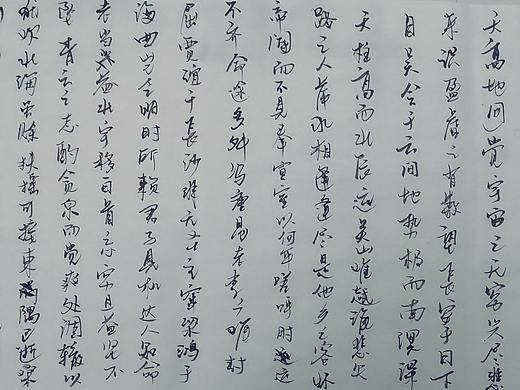 天高地迥觉宇宙之无穷兴尽悲
来识盈虚之有数望长安于日下
目吴会于云间地势极而南溟深
天柱高而北辰远关山难越谁悲失
路之人萍水相逢尽是他乡之客怀
帝阍而不见奉宣室以何年嗟呼时运
不齐命途多舛冯唐易老李广难封
屈贾谊于长沙非无圣主窜梁鸿于
海曲岂乏明时所赖君子见机达人知命
老当益壮宁移白首之心穷且益坚不
坠青云之志酌贪泉而觉爽处涸辙以
犹欢北海虽赊扶摇可接东隅已逝桑